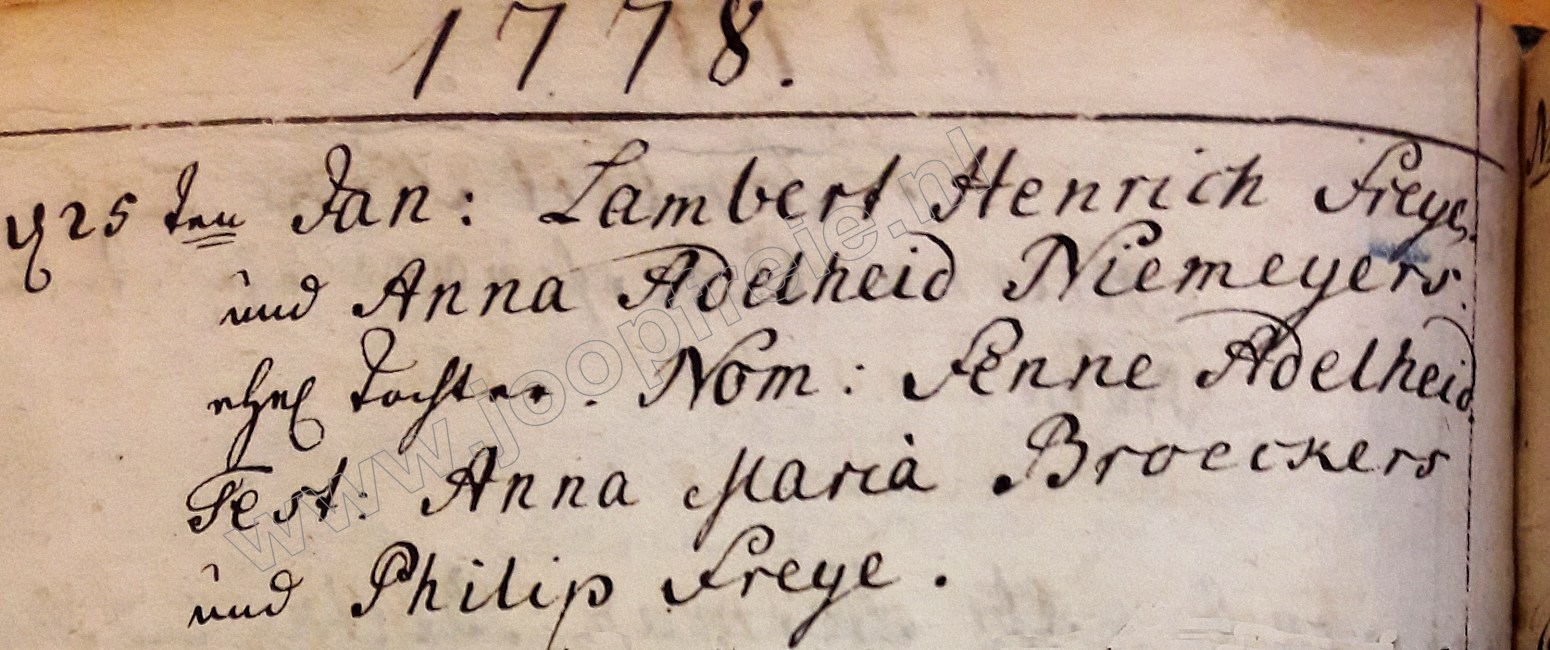 1778.
d 25 ten Jan: Lambert Henrich Freye
und Anna Adelheid Niemeyers.
ehel Tochter. Nom: Fenne Adelheid.
Test: Anna Maria Broeckers
und Philip Freye.
www.joopheie.nl